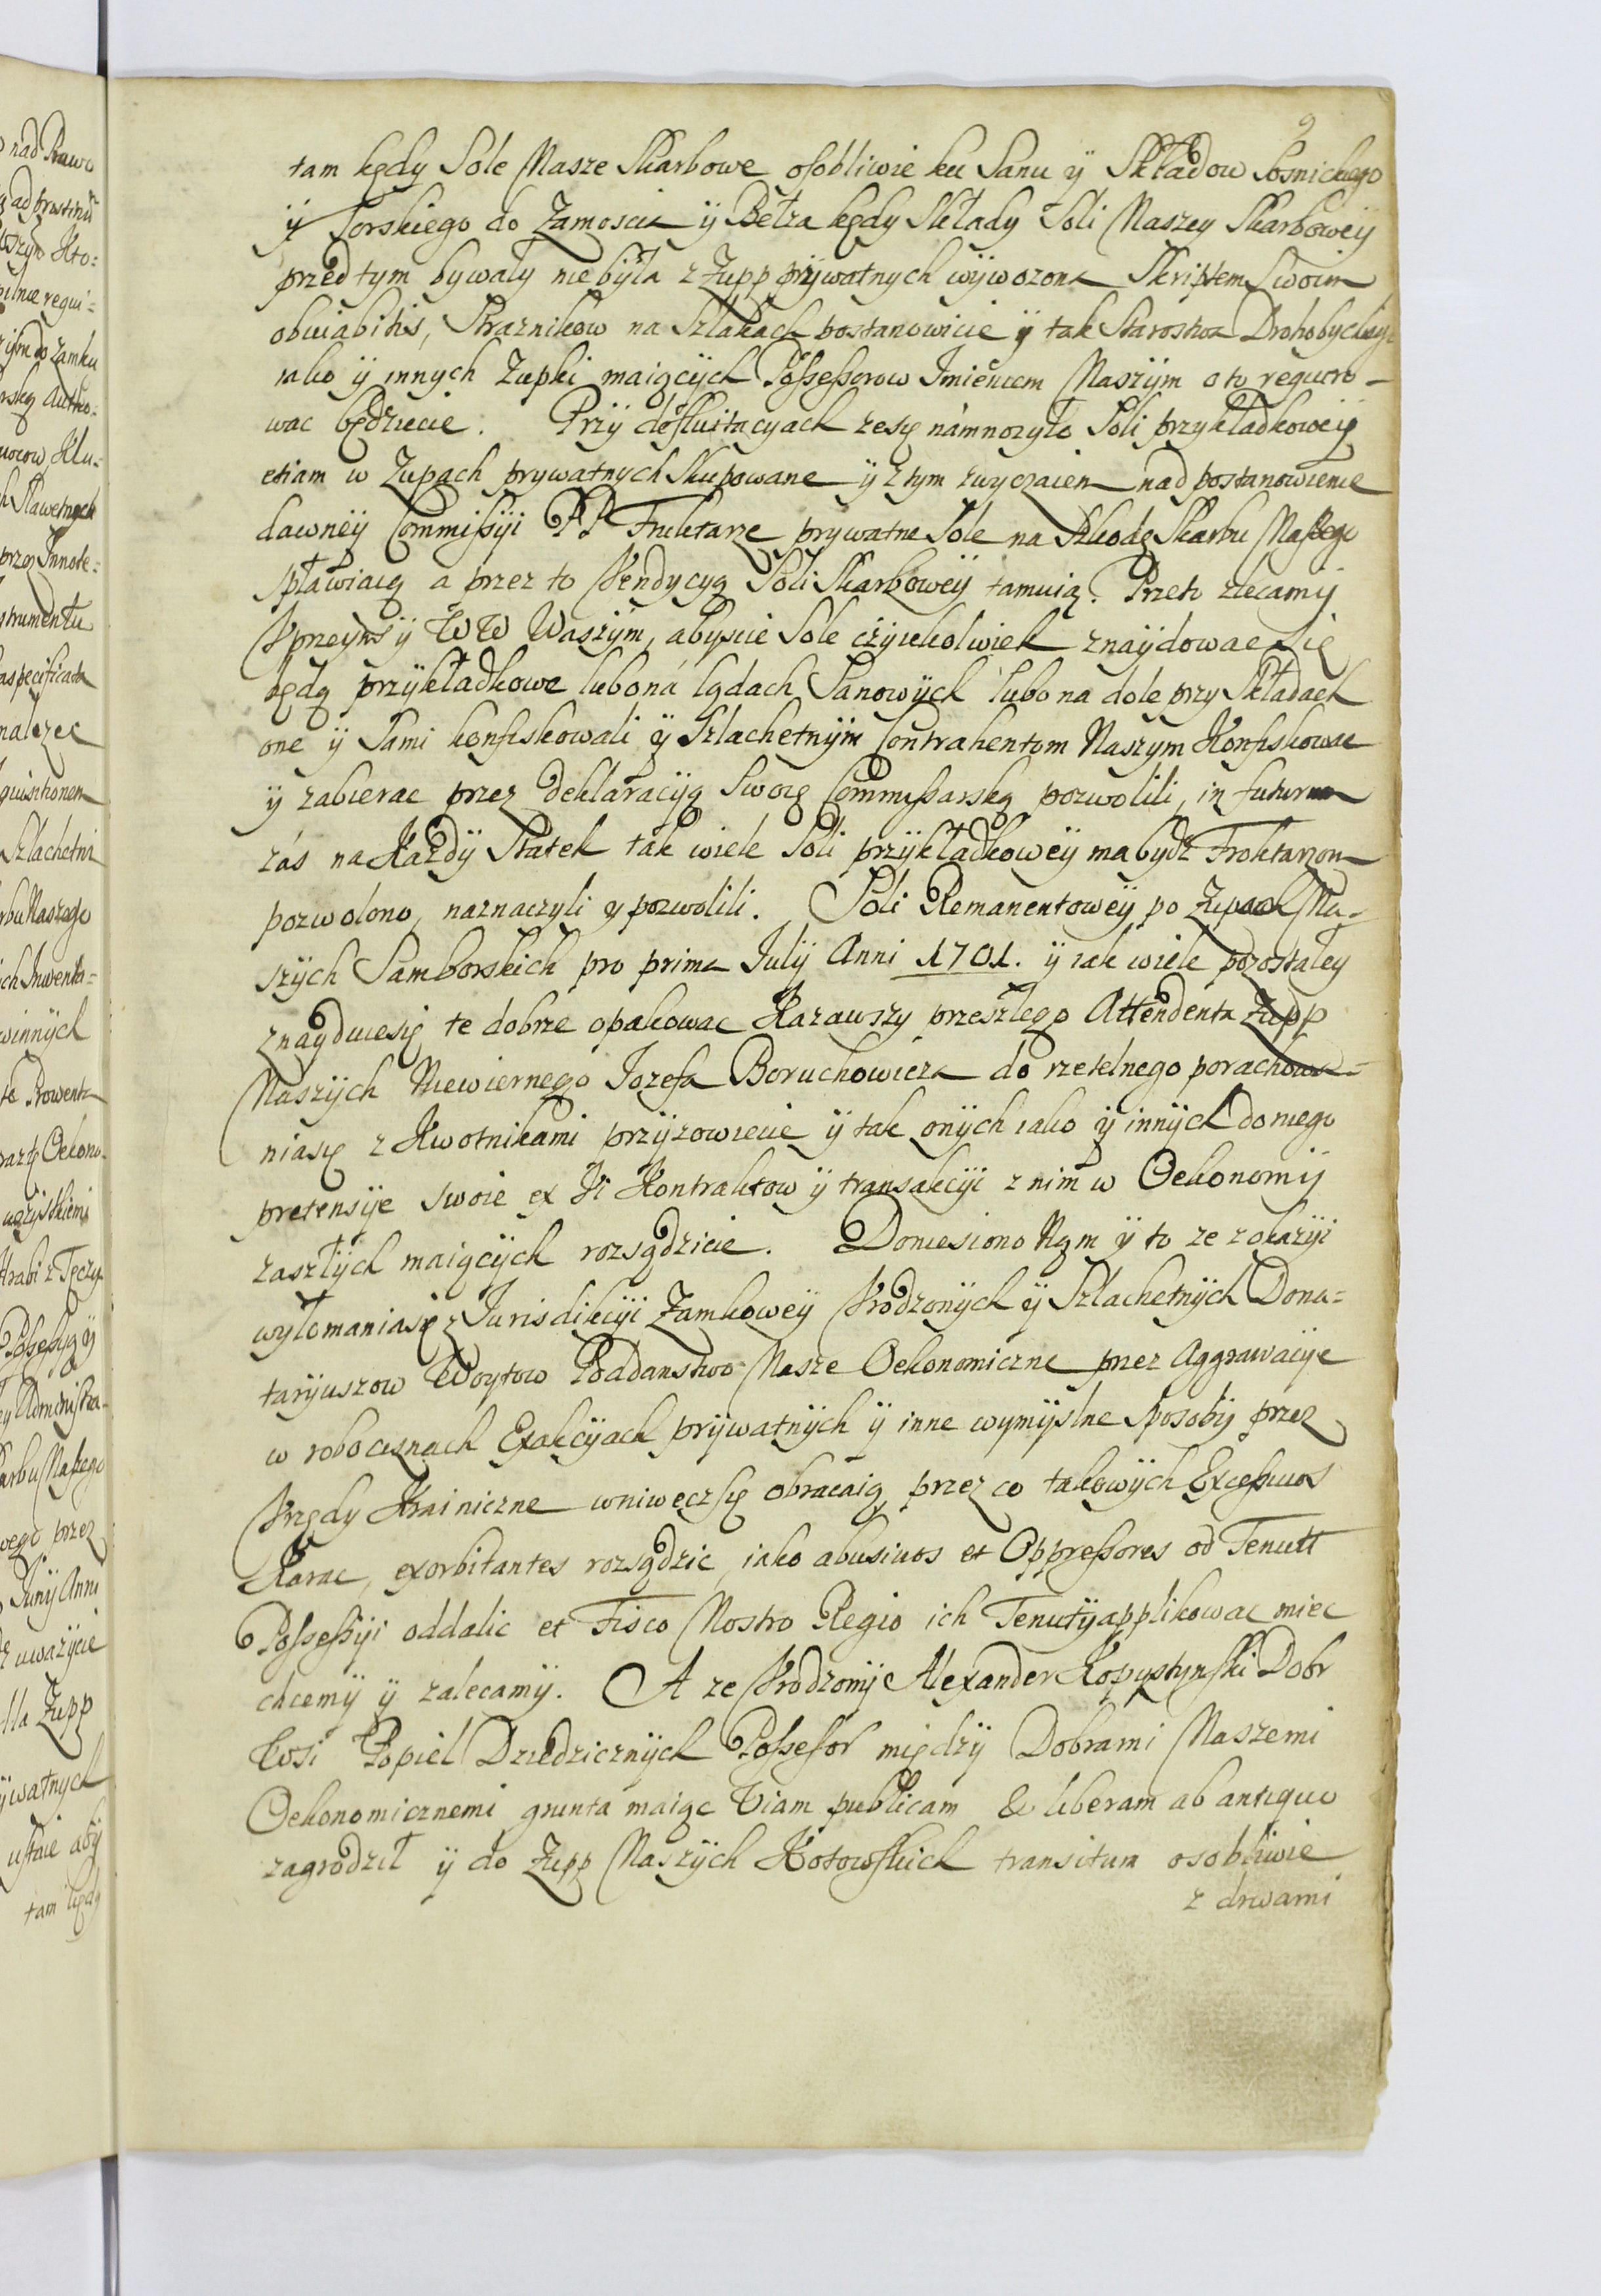 9
tam kędy Sole Nasze Skarbowe osobliwie ku Sanu ÿ Składow Sosnickiego
ÿ Torskiego do Zamoscia ÿ Bełza kędy Składy Soli Naszey Skarboweÿ
przed tym bywały nie była z Zupp prÿwatnych wÿwozona Skriptem Swoim
obuiabitis, Straznikow na Szlakach postanowicie ÿ tak Starostwa Drohobyckiego
iako ÿ innych Zupki maiącÿch Possessorow Imieniem Naszÿm o to requiro-
wac będziecie. Przÿ defluitacyach zesię námnozyło Soli przykładkoweÿ
etiam w Zupach prywatnych Skupowane ÿ z tym zwyczaiem nad postanowienie
dawneÿ Commissyi PP Fruktarze prywatne Sole na Szkodę Skarbu Naszego
spławiaią a przez to Wendycyą Soli Skarboweÿ tamuią. Przeto zlecamÿ
Vprzeymÿ ÿ WW Waszÿm, abyscie Sole czÿiekolwiek znaÿdowac się
będą przÿkładkowe lubo ná lądach Sanowÿch lubo na dole przy Składach
one ÿ Sami konfiskowali ÿ Szlachetnÿm Contrahentom Naszym Konfiskowac
ÿ zabierac przez deklaracÿą Swoię Commissarską pozwolili, in futurum
zás na Kazdÿ Statek tak wiele Soli przÿkładkoweÿ ma bydz Froktarzom
pozwolono, naznaczyli ÿ pozwolili. Soli Remanentoweÿ po Zupach Na-
szÿch Samborskich pro prima Julÿ Anni 1701. ÿ iak wiele pozostałey
znaÿduiesię te dobrze opakowac Kazawszy przeszłego Attendenta Zupp
Naszÿch Niewiernego Jozefa Boruchowicza do rzetelnego porachowa-
niasię z Kwotnikami przÿzowiecie ÿ tak onÿch iako ÿ innÿch do niego
pretensÿe swoie ex Vi Kontraktow ÿ transakcÿi z nim w Oekonomÿ
zaszłÿch maiącÿch rozsądzicie. Doniesiono Nąm ÿ to ze z okazÿi
wyłomaniasię z Jurisdikcÿi Zamkoweÿ Vrodzonÿch ÿ Szlachetnÿch Dona-
tarÿuszow Woytow Poddanstwo Nasze Oekonomiczne przez Aggrawacÿe
w robociznach Exakcÿach prÿwatnÿch ÿ inne wymÿslne Sposobÿ przez
Vrzędy Krainiczne wniwecz się obracaią przez co takowÿch Excessiuos
Karac, exorbitantes rozsądzic, iako abusiuos et Oppressores od Tenutt
Possessyi oddalic et Fisco Nostro Regio ich Tenutÿ applikowac miec
chcemÿ ÿ zalecamÿ. A ze Vrodzonÿ Alexander Kopystynski Dobr
Wsi Popiel Dziedzicznÿch Possessor międzÿ Dobrami Naszemi
Oekonomicznemi grunta maiąc Viam publicam & liberam ab antiquo
zagrodził ÿ do Zupp Naszÿch Kotowskich transitum osobliwie
z drwami